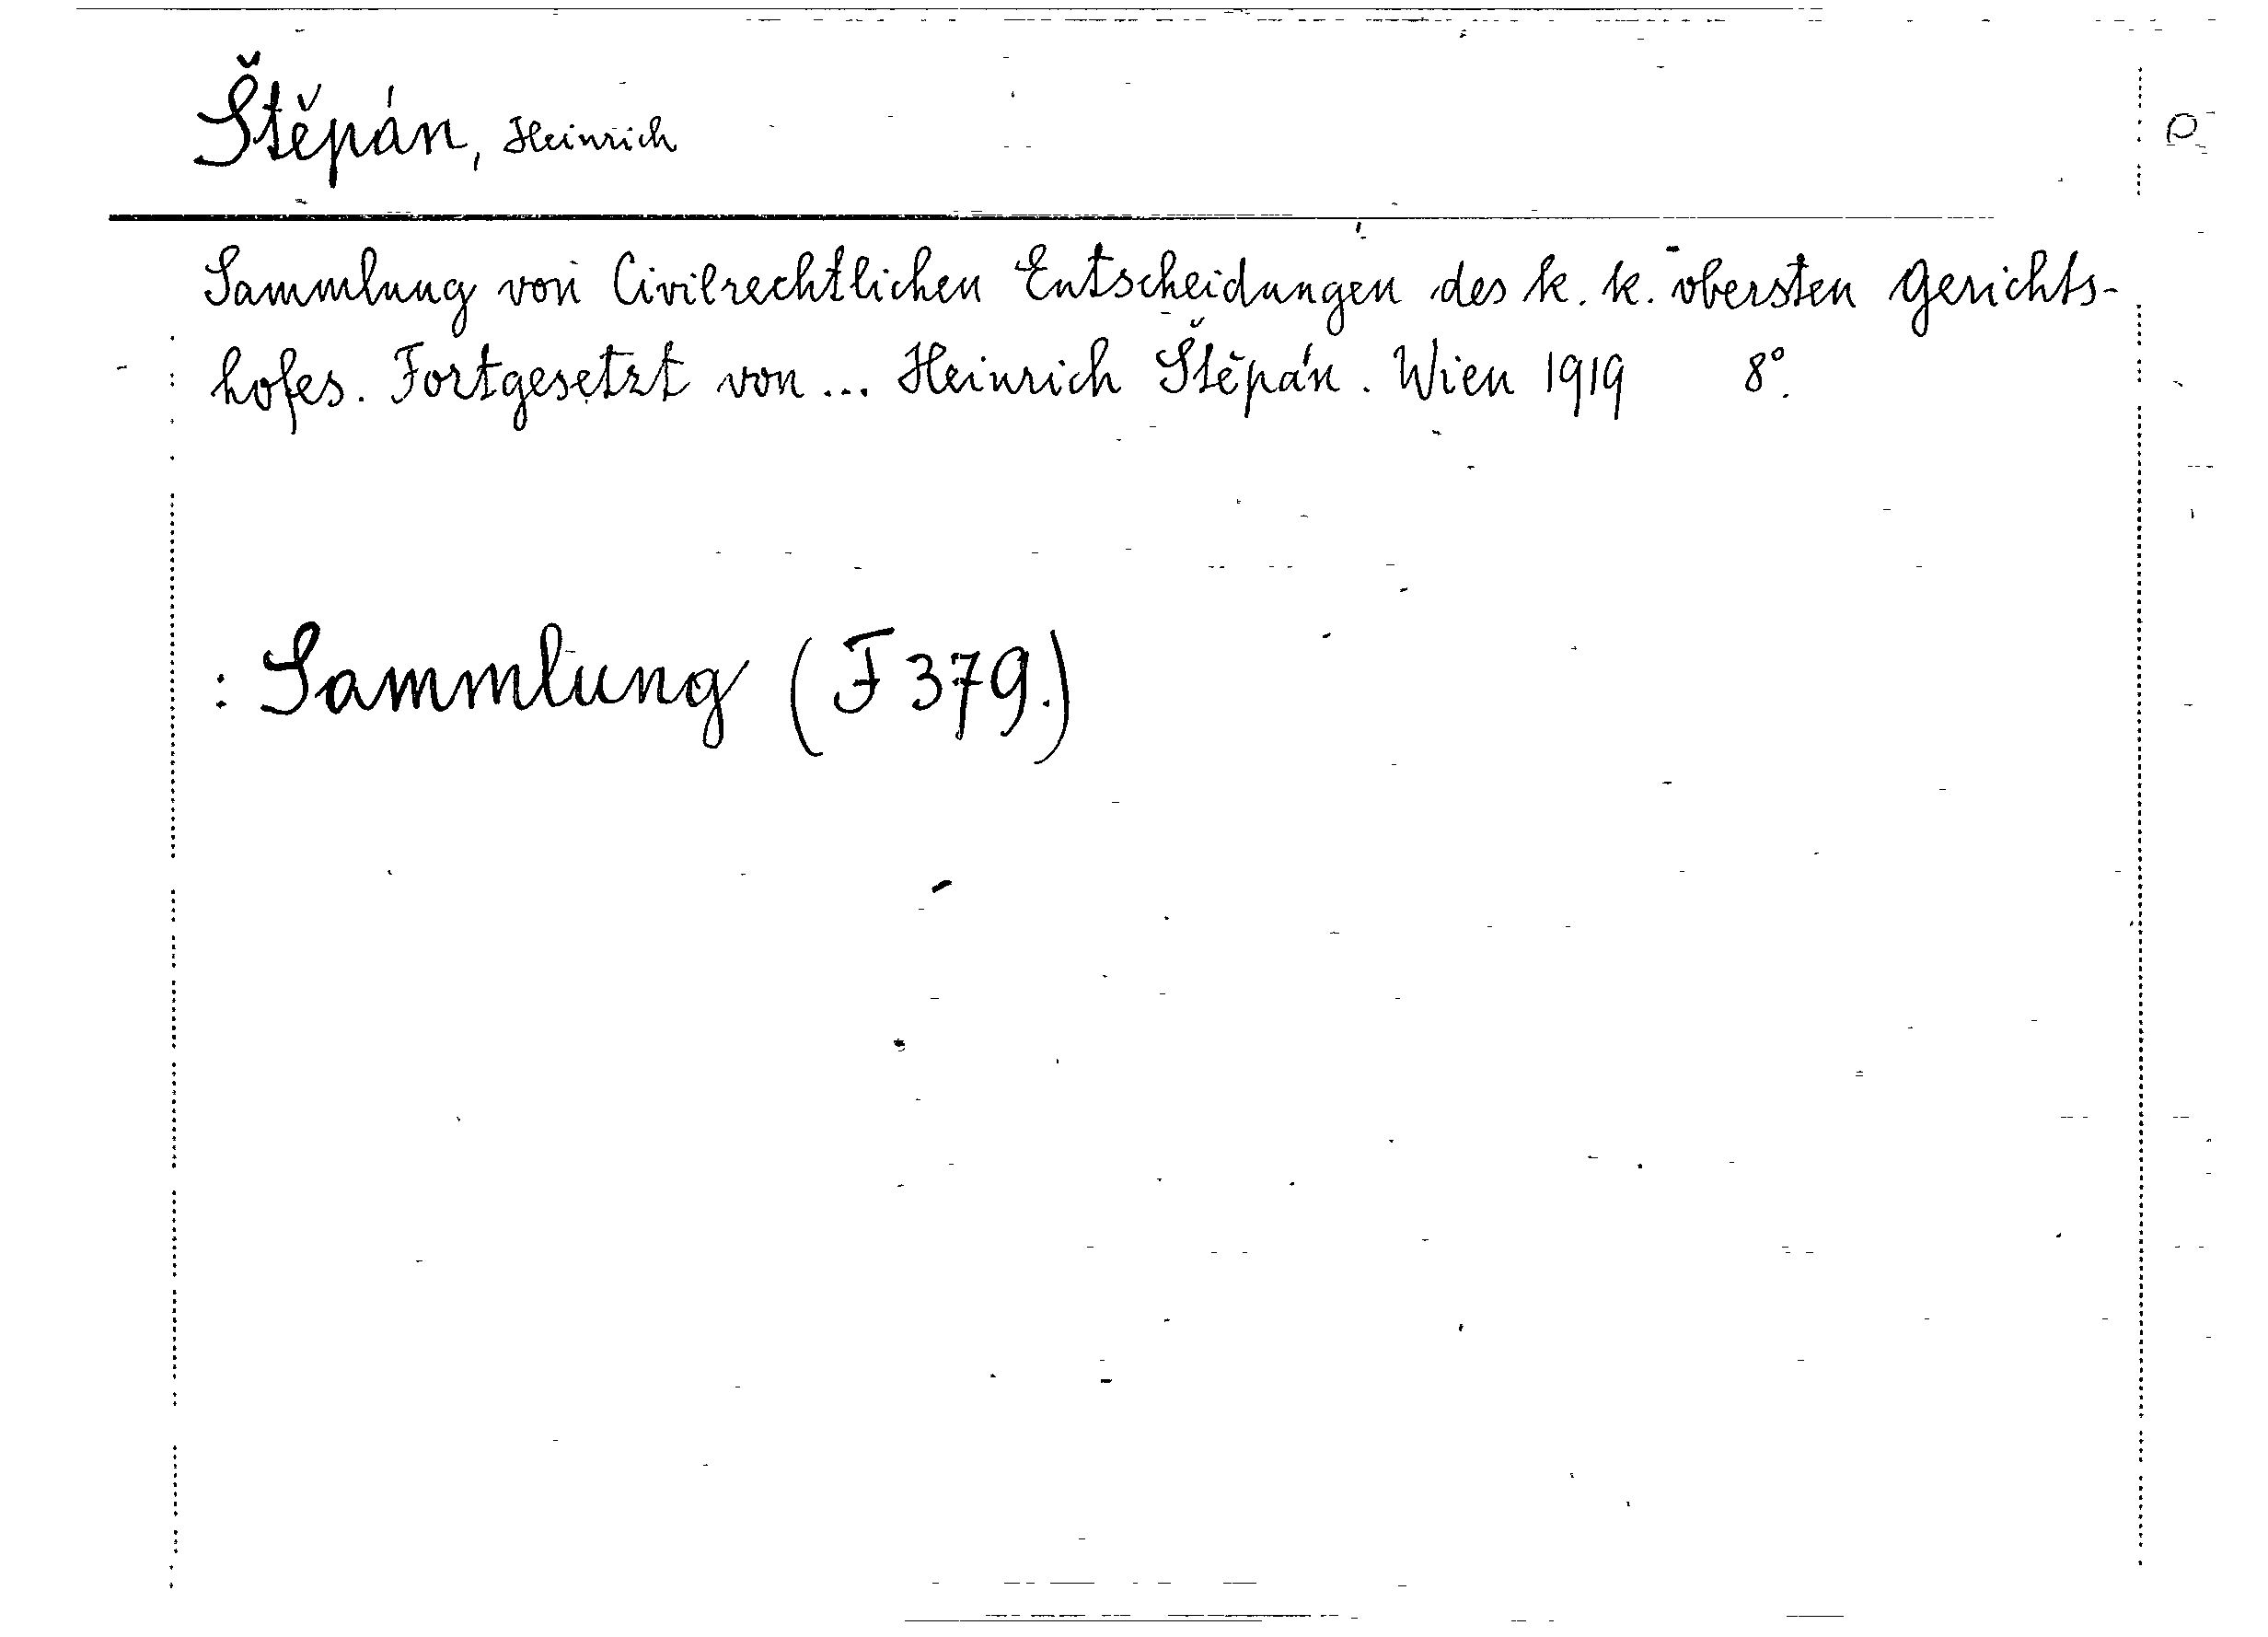 Štěpán, Heinrich
Sammlung von Civilrechtlichen Entscheidungen des k. k. obersten Gerichts-
hofes. Fortgesetzt von ... Heinrich Štěpán. Wien 1919 8°.
: Sammlung (F 379.)